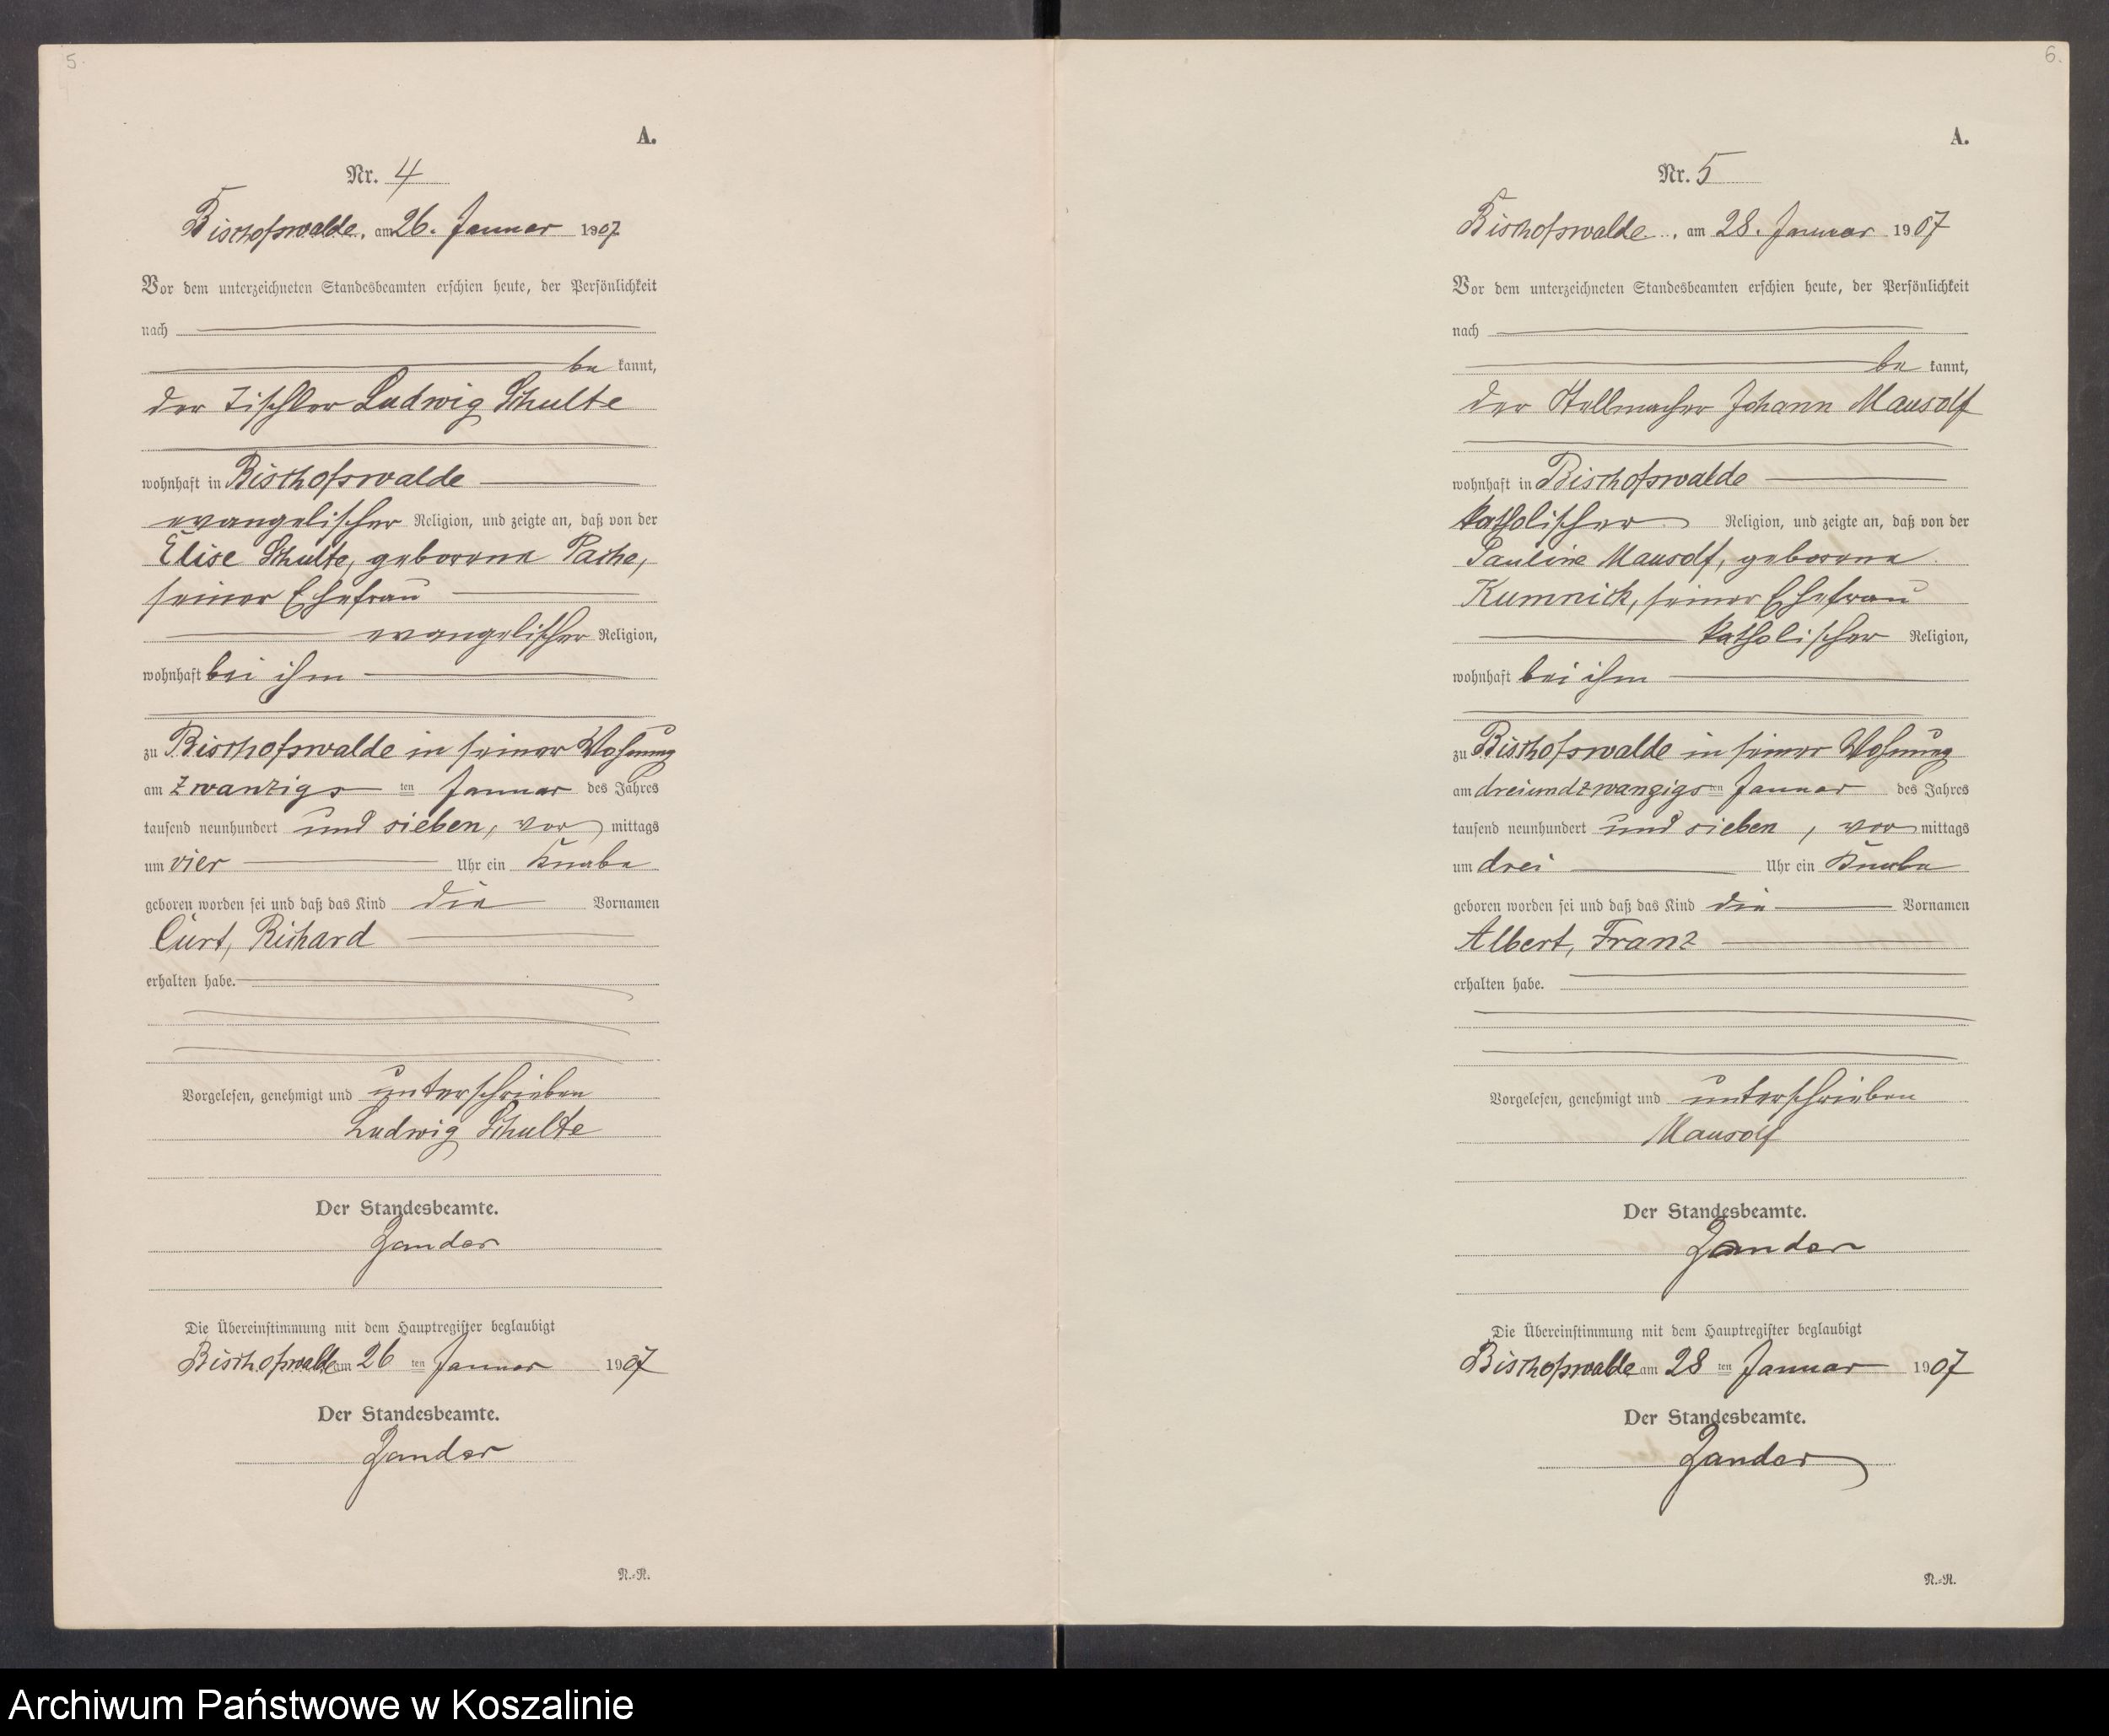 5.
A.
Nr. 4
Bischofswalde, am 26. Januar 1907
Vor dem unterzeichneten Standesbeamten erschien heute, der Persönlichkeit
nach
be kannt,
der Tischler Ludwig Schulte
wohnhaft in Bischofswalde
evangelischer Religion, und zeigte an, daß von der
Elise Schulte, geborene Pache,
seiner Ehefrau
evangelischer Religion,
wohnhaft bei ihm
zu Bischofswalde in seiner Wohnung
am zwanzigsten Januar des Jahres
tausend neunhundert und sieben, vor mittags
um vier Uhr ein Knabe
geboren worden sei und daß das Kind die Vornamen
Curt, Richard
erhalten habe.
Vorgelesen, genehmigt und unterschrieben
Ludwig Schulte
Der Standesbeamte.
Zander
Die Übereinstimmung mit dem Hauptregister beglaubigt
Bischofswalde am 26 ten Januar 1907
Der Standesbeamte.
Zander
N.=R.
6.
A.
Nr. 5
Bischofswalde, am 28. Januar 1907
Vor dem unterzeichneten Standesbeamten erschien heute, der Persönlichkeit
nach
be kannt,
der Stellmacher Johann Mausolf
wohnhaft in Bischofswalde
katholischer Religion, und zeigte an, daß von der
Pauline Mausolf, geborene
Kumnick, seiner Ehefrau
katholischer Religion,
wohnhaft bei ihm
zu Bischofswalde in seiner Wohnung
am dreiundzwanzigsten Januar des Jahres
tausend neunhundert und sieben, vor mittags
um drei Uhr ein Knabe
geboren worden sei und daß das Kind die Vornamen
Albert, Franz
erhalten habe.
Vorgelesen, genehmigt und unterschrieben
Mausolf
Der Standesbeamte.
Zander
Die Übereinstimmung mit dem Hauptregister beglaubigt
Bischofswalde am 28 ten Januar 1907
Der Standesbeamte.
Zander
N.=R.
Archiwum Państwowe w Koszalinie